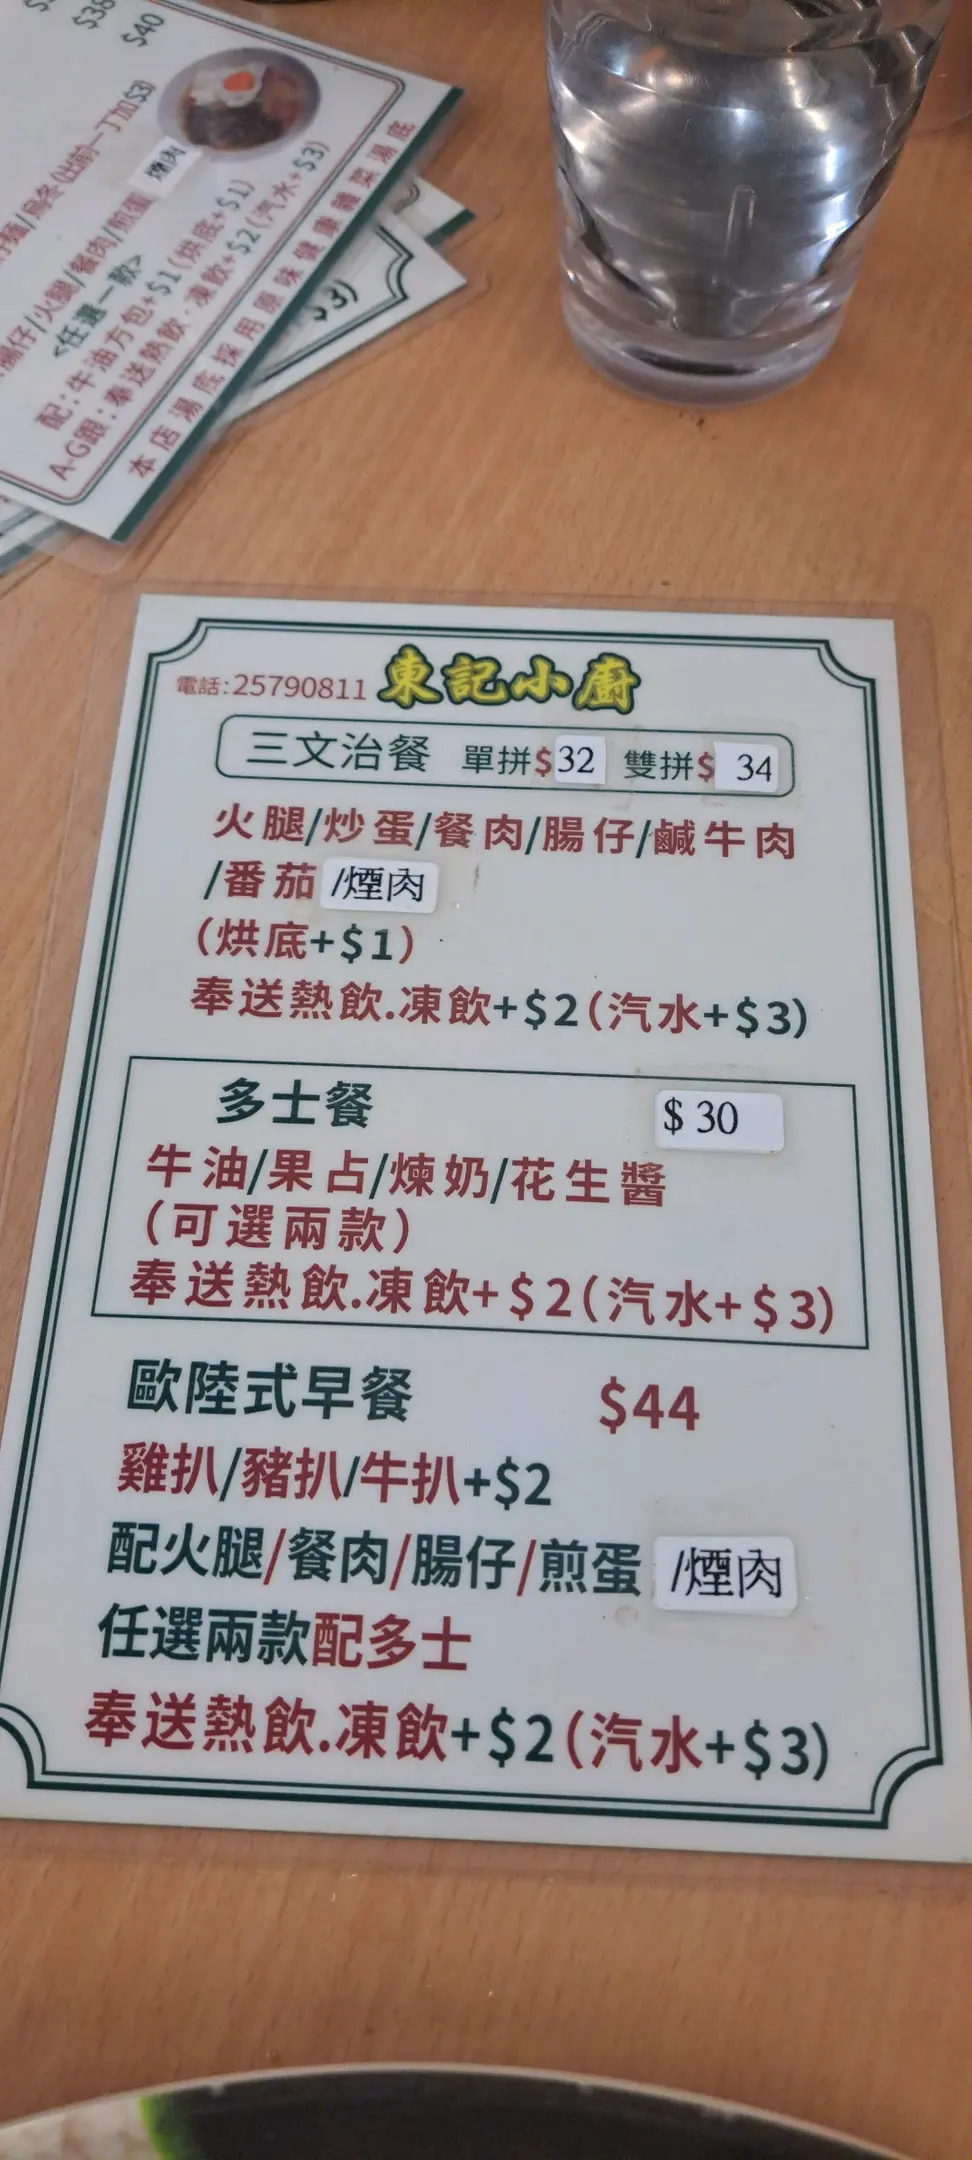 $38
$40
(出前一丁加$3)
腸仔/火腿/餐肉/煎蛋 煙肉
<任選一款>
配:牛油方包+$1(烘底+$1)
A-G跟:奉送熱飲.凍飲+$2(汽水+$3)
本店湯底採用原味健康雜菜湯底
$3)
電話:25790811 東記小廚
三文治餐 單拼$32 雙拼$ 34
火腿/炒蛋/餐肉/腸仔/鹹牛肉
/番茄 /煙肉
(烘底+$1)
奉送熱飲.凍飲+$2(汽水+$3)
多士餐 $ 30
牛油/果占/煉奶/花生醬
(可選兩款)
奉送熱飲.凍飲+$2(汽水+$3)
歐陸式早餐 $44
雞扒/豬扒/牛扒+$2
配火腿/餐肉/腸仔/煎蛋 /煙肉
任選兩款配多士
奉送熱飲.凍飲+$2(汽水+$3)